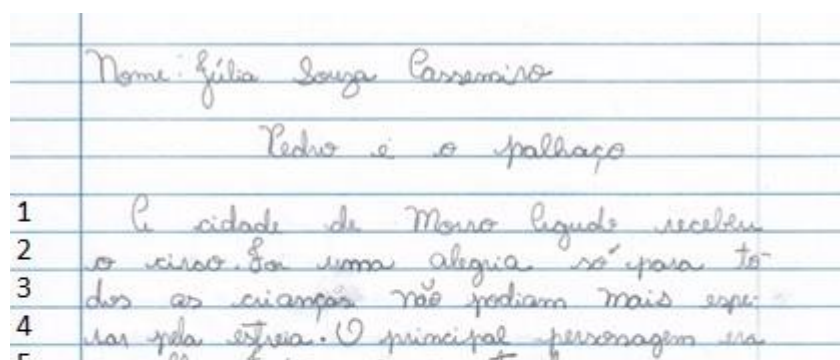 Nome: Júlia Souza Cassemiro
Pedro e o palhaço
1 A cidade de Morro Agudo recebeu
2 o circo. Foi uma alegria só para to-
3 dos as crianças não podiam mais espe-
4 rar pela estreia. O principal personagem era
5